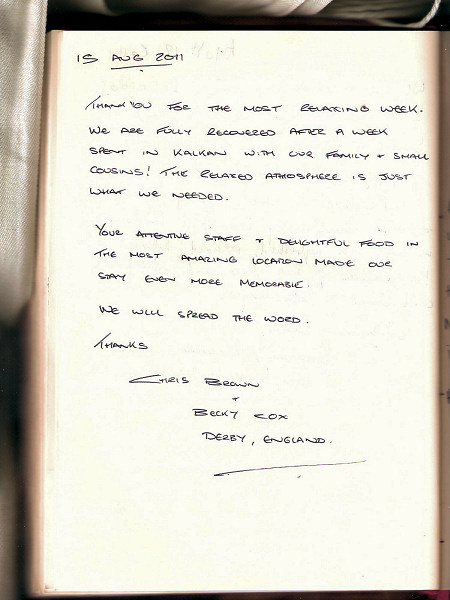 15 AUG 2011
THANK YOU FOR THE MOST RELAXING WEEK.
WE ARE FULLY RECOVERED AFTER A WEEK
SPENT IN KALKAN WITH OUR FAMILY + SMALL
COUSINS! THE RELAXED ATMOSPHERE IS JUST
WHAT WE NEEDED.
YOUR ATTENTIVE STAFF + DELIGHTFUL FOOD IN
THE MOST AMAZING LOCATION MADE OUR
STAY EVEN MORE MEMORABLE.
WE WILL SPREAD THE WORD.
THANKS
CHRIS BROWN
+
BECKY COX
DERBY, ENGLAND.